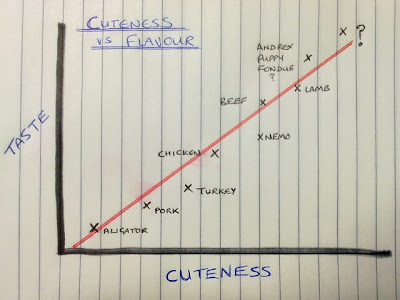 CUTENESS
vs FLAVOUR
?
ANDREX
PUPPY
FONDUE
?
LAMB
BEEF
NEMO
CHICKEN
TURKEY
PORK
ALIGATOR
TASTE
CUTENESS